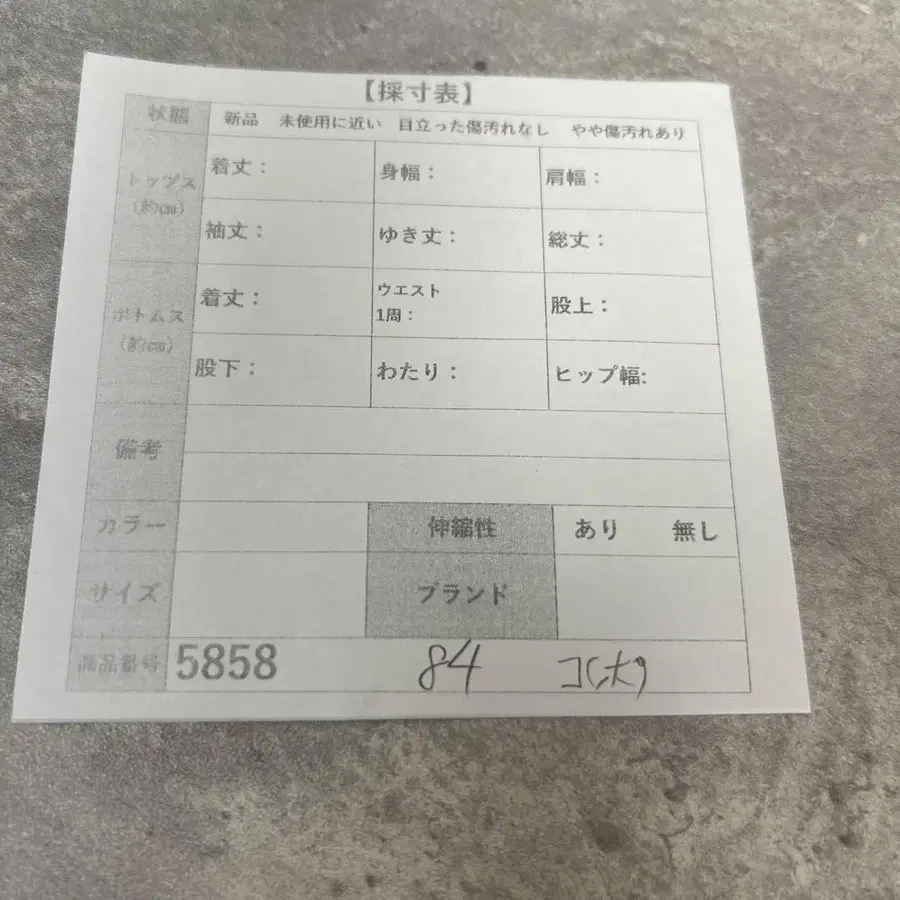 【採寸表】
状態 新品 未使用に近い 目立った傷汚れなし やや傷汚れあり
トップス (約/cm) 着丈： 身幅： 肩幅：
袖丈： ゆき丈： 総丈：
ボトムス (約/cm) 着丈： ウエスト 1周： 股上：
股下： わたり： ヒップ幅:
備考
カラー 伸縮性 あり 無し
サイズ ブランド
商品番号 5858 84